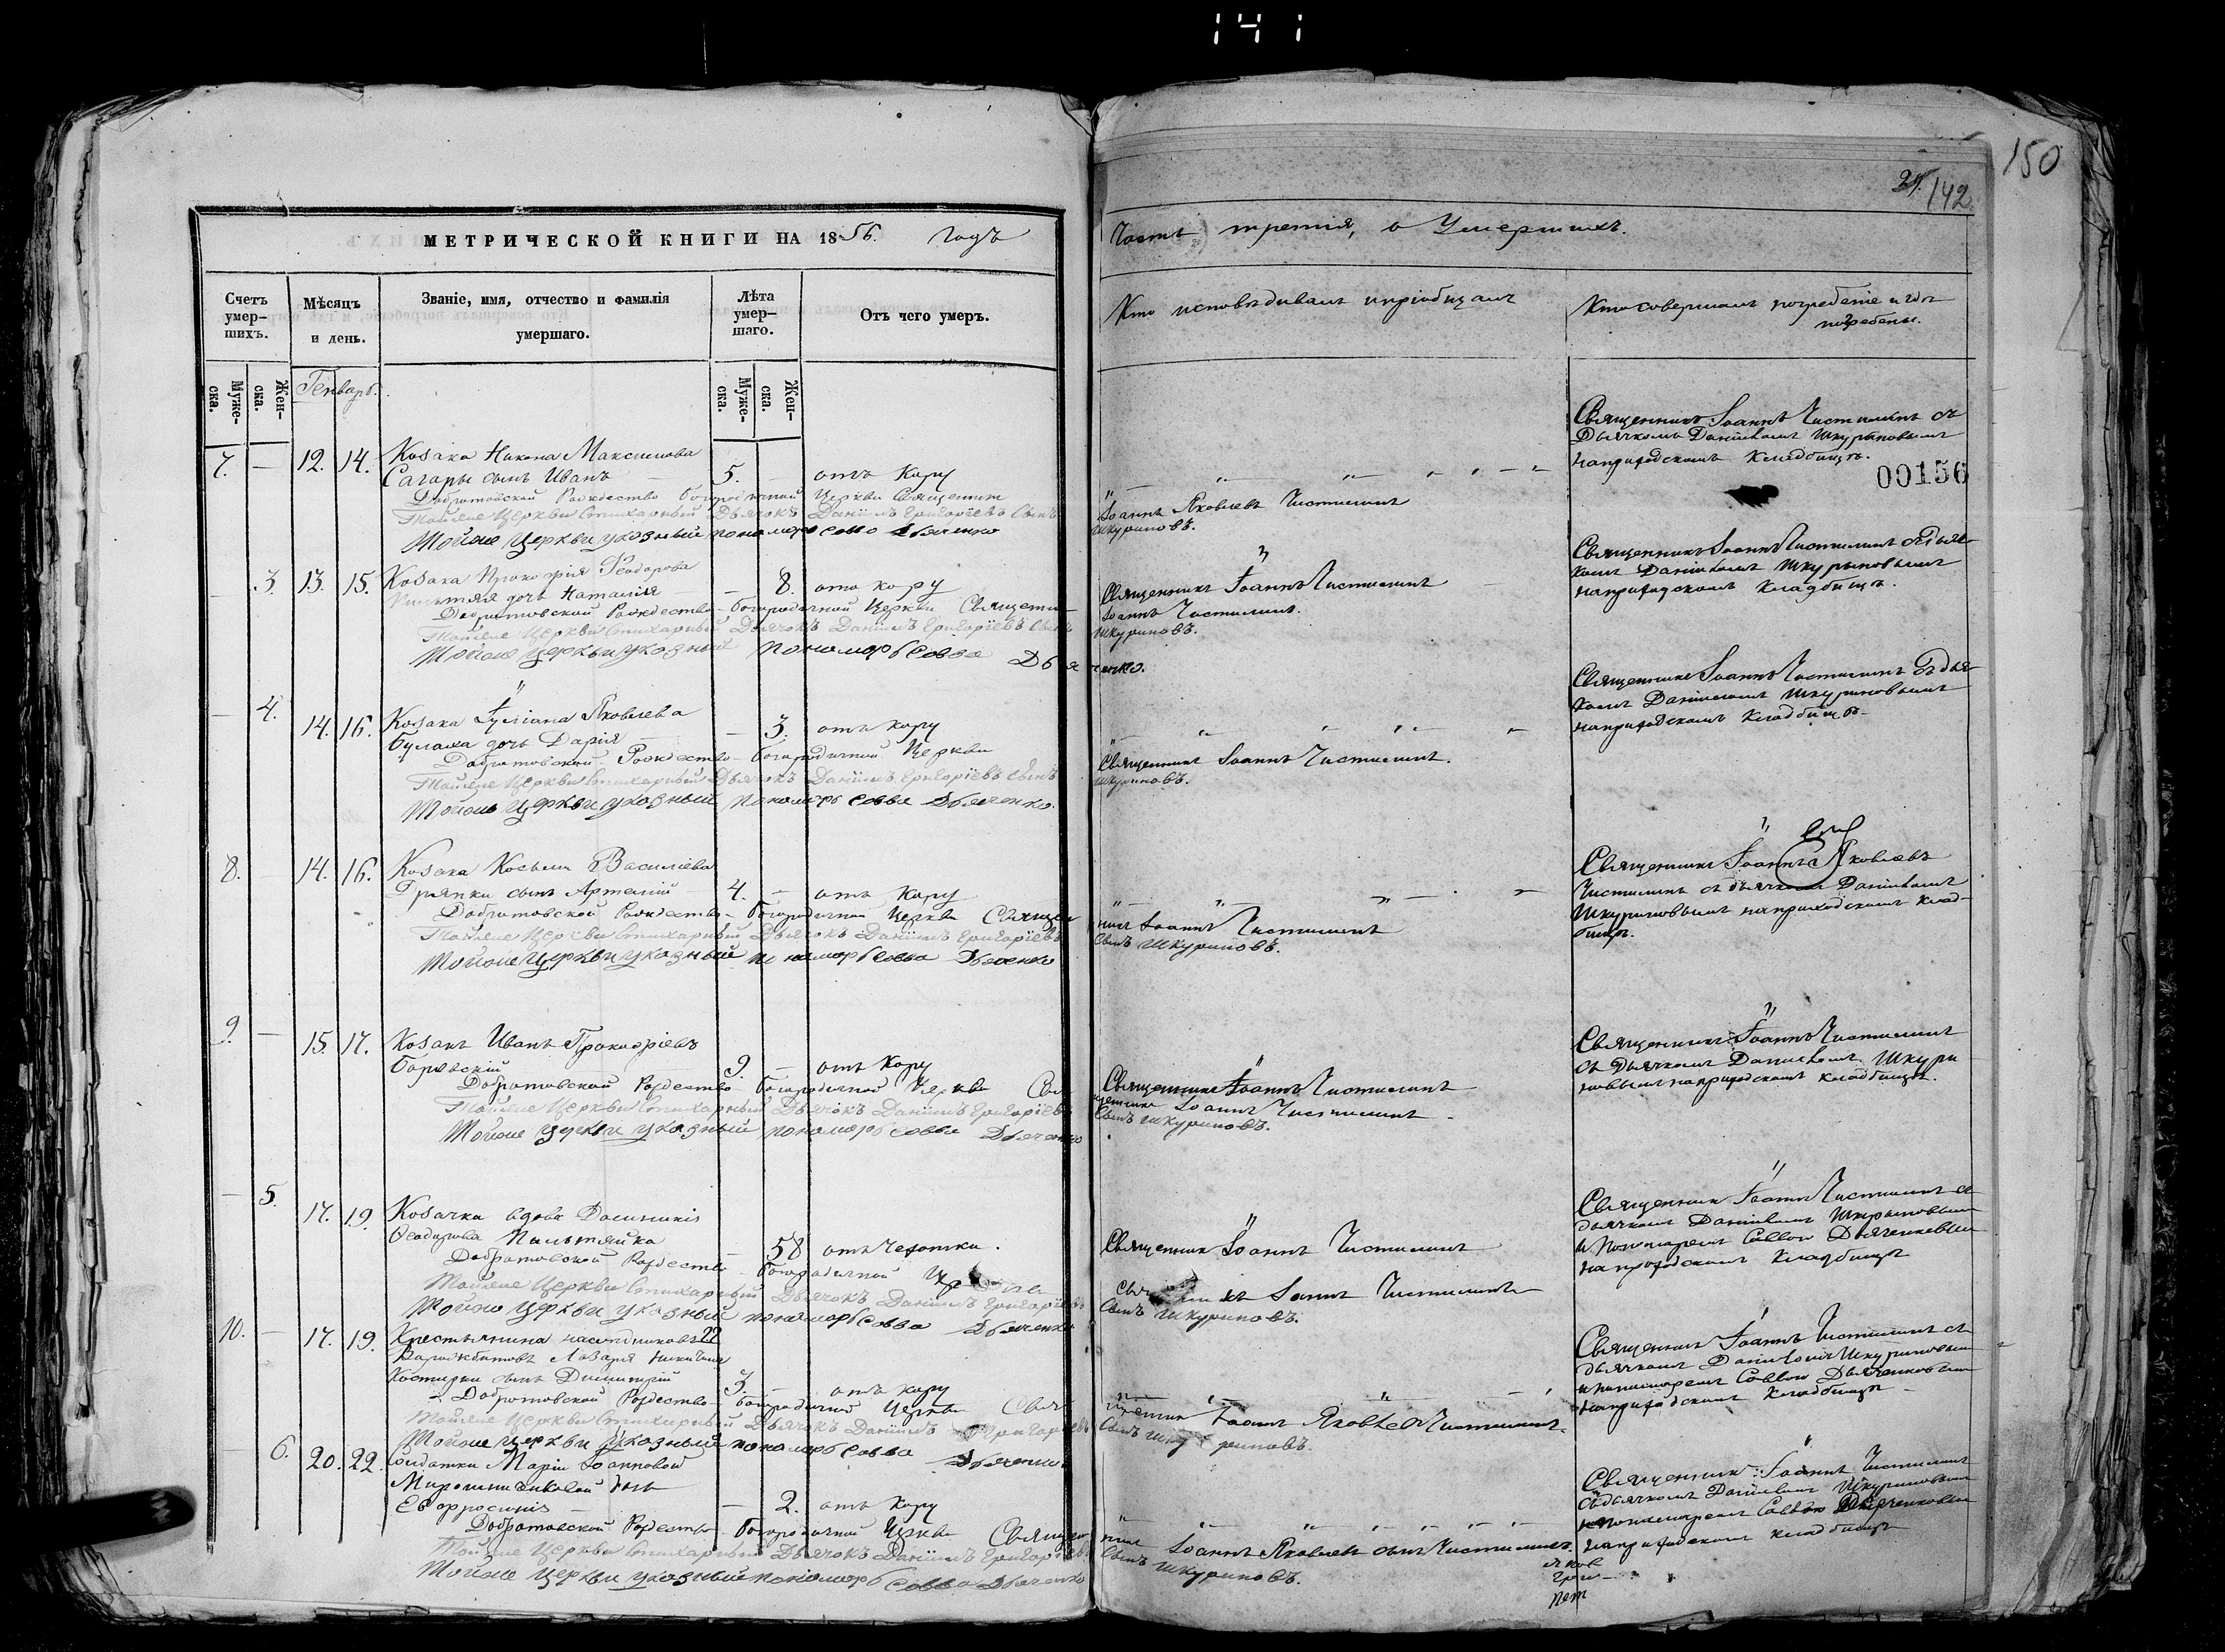 141
150
142
МЕТРИЧЕСКОЙ КНИГИ НА 1856. годъ
Часть третія, о Умершихъ.
Счетъ умер-
шихъ.
Мѣсяцъ
и день.
Званіе, имя, отчество и фамилія
умершаго.
Лѣта
умер-
шаго.
Отъ чего умеръ.
Кто исповѣдывалъ и пріобщалъ
Кто совершалъ погребеніе и гдѣ
погребены.
Муже-
ска.
Жен-
ска.
Генварь.
Муже-
ска.
Жен-
ска.
7. — 12. 14. Козака Никона Максимова
Сагары сынъ Иванъ 5. — отъ кору
Добротовской Рождество Богородичной Церкви Священник
Іоаннъ Яковлевъ Чистилинъ
Тойже Церкви Стихарный Дьячокъ Даніилъ Григоріевъ Сынъ
Шкуриновъ.
Тойже Церкви указный пономарь Савва Дьяченко
Священникъ Іоаннъ Чистилинъ съ
Дьячкомъ Даніиломъ Шкуриновымъ
наприходскомъ кладбищѣ.
00156
— 3. 13. 15. Козака Прокофія Феодорова
дочь Наталія — 8. отъ кору
Священникъ Іоаннъ Чистилинъ
Добротовской Рождество-Богородичной Церкви Священ
Іоаннъ Чистилинъ.
Тойже Церкви Стихарный Дьячокъ Даніилъ Григоріевъ Сынъ
Шкуриновъ.
Тойже Церкви указный пономарь Савва Дьяченко.
Священникъ Іоаннъ Чистилинъ съ дьяч-
комъ Даніиломъ Шкуриновымъ
наприходскомъ кладбищѣ.
— 4. 14. 16. Козака Іуліана Яковлева
Булаха дочь Дарія — 3. отъ кору
Добротовской Рождество-Богородичной Церкви
Священникъ Іоаннъ Чистилинъ.
Тойже Церкви Стихарный Дьячокъ Даніилъ Григоріевъ Сынъ
Шкуриновъ.
Тойже Церкви указный пономарь Савва Дьяченко.
Священникъ Іоаннъ Чистилинъ съ дьяч-
комъ Даніиломъ Шкуриновымъ
наприходскомъ кладбищѣ
8. — 14. 16. Козака Косьмы Василіева
сынъ 4. — отъ кору
Добротовской Рождество-Богородичной Церкви Священ
никъ Іоаннъ Чистилинъ
Тойже Церкви Стихарный Дьячокъ Даніилъ Григоріевъ
Сынъ Шкуриновъ.
Тойже Церкви указный пономарь Савва Дьяченко
Священникъ Іоаннъ Яковлевъ
Чистилинъ съ дьячкомъ Даніиломъ
Шкуриновымъ наприходскомъ клад-
бищѣ.
9. — 15. 17. Козакъ Иванъ Прокофіевъ
9. — отъ кору
Священникъ Іоаннъ Чистилинъ
Добротовской Рождество Богородичной Церкви Свя
щенникъ Іоаннъ Чистилинъ
Тойже Церкви Стихарный Дьячокъ Даніилъ Григоріевъ
Сынъ Шкуриновъ.
Тойже Церкви указный пономарь Савва Дьяченко
Священникъ Іоаннъ Чистилинъ
съ Дьячкомъ Даніиломъ Шкури
новымъ наприходскомъ кладбищѣ.
— 5. 17. 19. Козачка вдова Домникія
Феодорова — 58 отъ чехотки.
Священникъ Іоаннъ Чистилинъ
Добротовской Рождество Богородичной Церкви
Іоаннъ Чистилинъ
Тойже Церкви Стихарный Дьячокъ Даніилъ Григоріевъ
Сынъ Шкуриновъ.
Тойже Церкви указный пономарь Савва Дьяченко
Священникъ Іоаннъ Чистилинъ съ
дьячкомъ Даніиломъ Шкуриновымъ
и Пономаремъ Саввою Дьяченковымъ
наприходскомъ кладбищѣ
10. — 17. 19. Крестьянина наслѣдниковъ
Лазаря
сынъ Димитрій 3. — отъ кору
Добротовской Рождество-Богородичной Церкви Свя
щенникъ Іоаннъ Яковлевъ Чистилинъ.
Тойже Церкви Стихарный Дьячокъ Даніилъ Григоріевъ
Сынъ Шкуриновъ.
Тойже Церкви указный пономарь Савва Дьяченко
Священникъ Іоаннъ Чистилинъ съ
дьячкомъ Даніиломъ Шкуриновымъ
и пономаремъ Саввою Дьяченковымъ
наприходскомъ кладбищѣ
— 6. 20. 22. Солдатки Маріи Іоанновой
дочь
Евфросинія — 2. отъ кору
Добротовской Рождество-Богородичной Церкви Священ
никъ Іоаннъ Яковлевъ сынъ Чистилинъ.
Тойже Церкви Стихарный Дьячокъ Даніилъ Григоріевъ
Сынъ Шкуриновъ.
Тойже Церкви указный пономарь Савва Дьяченко
Священникъ Іоаннъ Чистилинъ
съ дьячкомъ Даніиломъ Шкуриновымъ
и пономаремъ Саввою Дьяченковымъ
наприходскомъ кладбищѣ